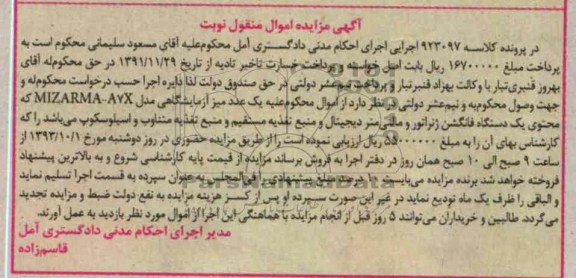 آگهی مزایده اموال منقول نوبت
در پرونده کلاسه ۹۲۳۰۹۷ اجرایی اجرای احکام مدنی دادگستری آمل محکوم‌علیه آقای مسعود سلیمانی محکوم است به
پرداخت مبلغ ۱۶۷۰۰۰۰۰ ریال بابت اصل خواسته و پرداخت خسارت تاخیر تادیه از تاریخ ۱۳۹۱/۱۱/۲۹ در حق محکوم‌له آقای
بهروز قنبری‌تبار با وکالت بهزاد قنبرتبار و پرداخت نیم‌عشر دولتی در حق صندوق دولت لذا دایره اجرا حسب درخواست محکوم‌له و
جهت وصول محکوم‌به و نیم‌عشر دولتی در نظر دارد از اموال محکوم‌علیه یک عدد میز آزمایشگاهی مدل MIZARMA-A۷X که
محتوی یک دستگاه فانگشن ژنراتور و مالتی‌متر دیجیتال و منبع تغذیه مستقیم و منبع تغذیه متناوب و اسیلوسکوپ می‌باشد را که
کارشناس بهای آن را به مبلغ ۵۵۰۰۰۰۰۰ ریال ارزیابی نموده است را از طریق مزایده حضوری در روز دوشنبه مورخ ۱۳۹۳/۱۰/۱ از
ساعت ۹ صبح الی ۱۰ صبح همان روز در دفتر اجرا به فروش برساند مزایده از قیمت پایه کارشناسی شروع و به بالاترین پیشنهاد
فروخته خواهد شد برنده مزایده می‌بایست ۱۰ درصد مبلغ پیشنهادی را فی‌المجلس به عنوان سپرده به قسمت اجرا تسلیم نماید
و الباقی را ظرف یک ماه تودیع نماید در غیر این صورت سپرده او پس از کسر هزینه مزایده به نفع دولت ضبط و مزایده تجدید
می‌گردد. طالبین و خریداران می‌توانند ۵ روز قبل از انجام مزایده با هماهنگی این اجرا از اموال مورد نظر بازدید به عمل آورند.
مدیر اجرای احکام مدنی دادگستری آمل
قاسم‌زاده